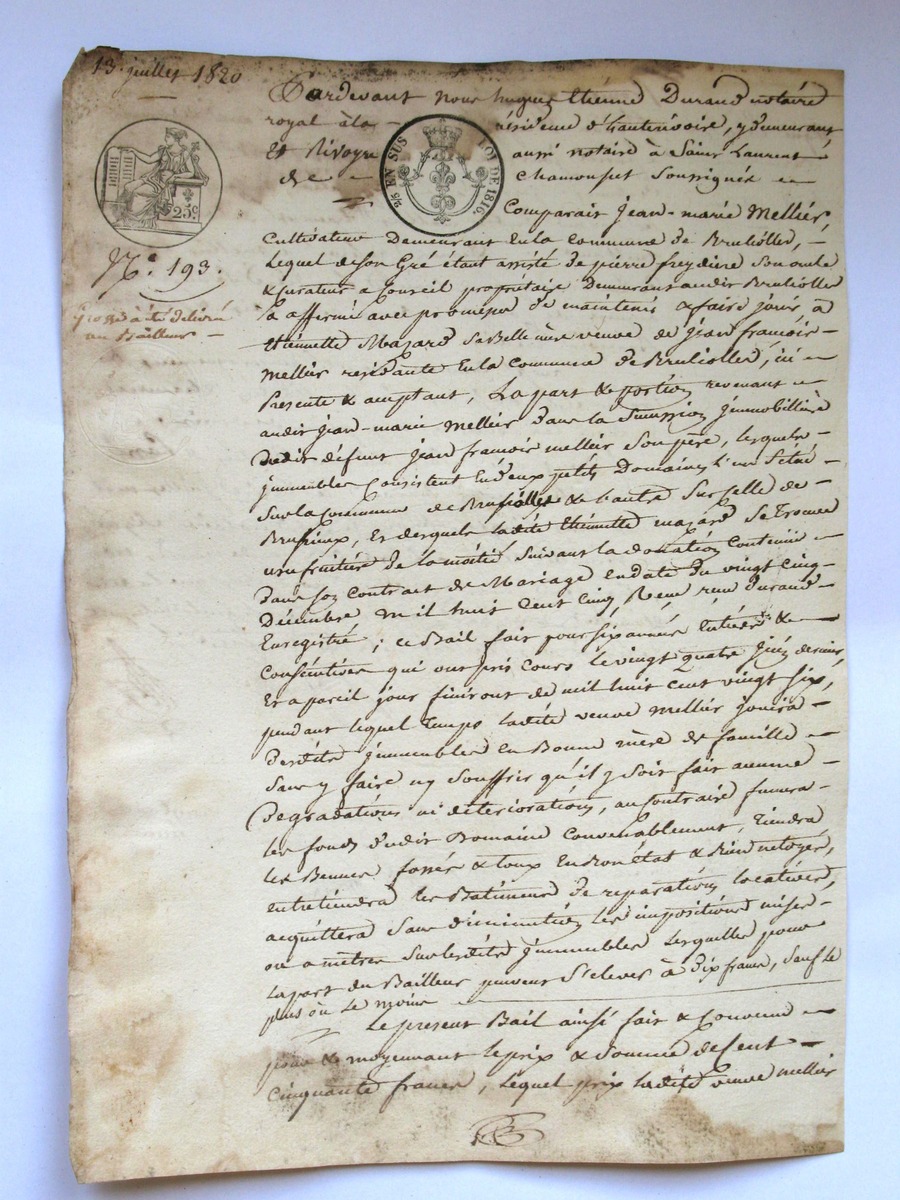 13. juillet 1820
25c
2/5 EN SUS LOI DE 1816.
N.º 193.
Grosse a été délivré
au Bailleur
Pardevant nous hugues Etienne Durand notaire
royal à la résidence d'hauterivoire, y demeurant
Et Rivoyre aussi notaire à Saint Laurent
de Chamousset soussignés
Comparait Jean-marie Mellier,
Cultivateur Demeurant En la Commune de Brullioller,
Lequel de son Gré étant assisté de pierre freydiere son oncle
& curateur a Conseil propriétaire demeurant audit Brullioller
a affermé avec promesse de maintenir & faire jouir à
Ethiennette Mazard sa Belle mère veuve de jean francois
Mellier residante En la Commune de Brullioller, ici
Presente & acceptant, La part & portion revenant
audit jean-marie Mellier dans la Succession jmmobillière
dudit défunt jean francois mellier son père, lesquels
jmmeubles Consistent En deux petits Domaines l'un Situé
Sur la Commune de Brullioller & l'autre Sur Celle de
Brussieux, Et desquels ladite Ethiennette mazard Se trouve
usufruitière de la moitié Suivant la donation Contenue
Dans son Contrat de Mariage En date du vingt Cinq
Décembre mil huit Cent Cinq, Reçu Durand
Enregistré ; Ce Bail fait pour six années Entières &
Consécutives qui ont pris Cours le vingt quatre juin dernier,
Et a pareil jour finiront de mil huit Cent vingt Six,
pendant lequel temps ladite veuve Mellier jouira
Desdits jmmeubles En Bonne mère de famille
Sans y faire ny Souffrir qu'il y Soit fait aucune
Dégradations ni déteriorations, au Contraire fumera
les fonds dudit Domaine Convenablement, tiendra
les fossés & En bon état & Bien netoyés,
entretiendra les Batimens de reparations locatives,
acquittera Sans diminution les impositions mises
ou a mettre Sur lesdits jmmeubles lesquelles pour
la part du Bailleur peuvent S'elever à Dix francs, Sauf le
plus ou le moins
Le present Bail ainsi fait & Convenu
pour & moyennant le prix & Somme de Cent
Cinquante francs, Lequel prix ladite veuve Mellier